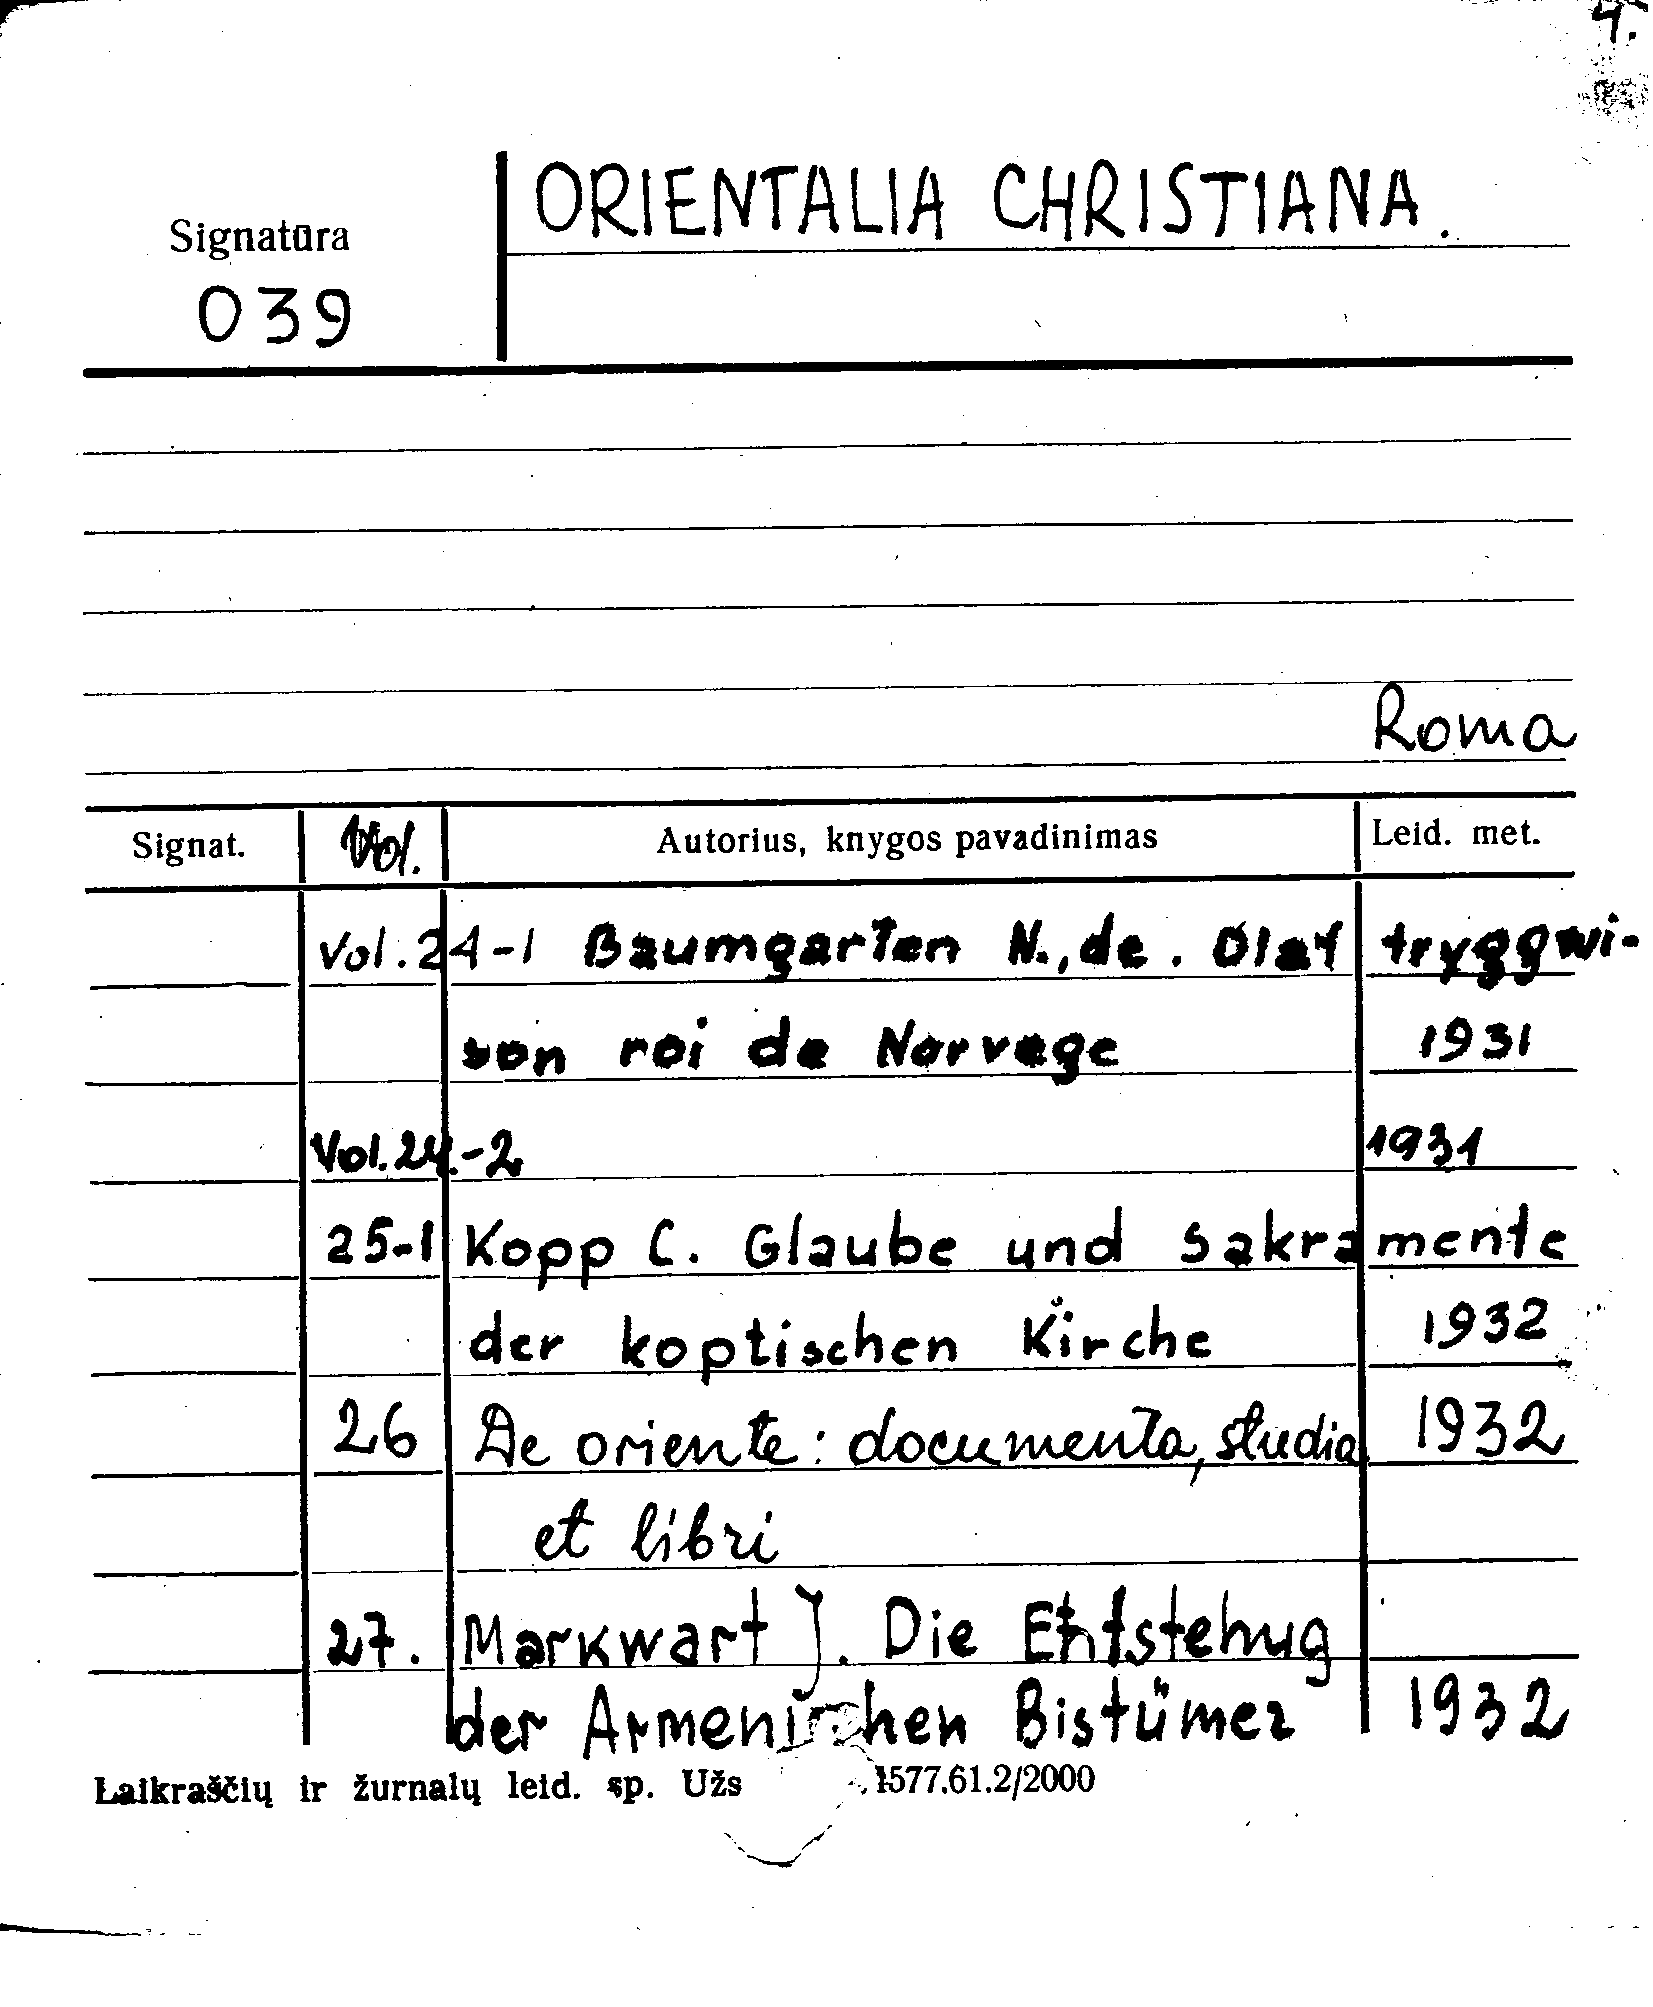 4.
ORIENTALIA CHRISTIANA.
Signatūra
039
Roma
Signat. Vol. Autorius, knygos pavadinimas Leid. met.
Vol. 24-1 Baumgarten N., de. Olaf tryggwi-
son roi de Norvege 1931
Vol. 24.-2 1931
25-1 Kopp C. Glaube und Sakramente
der koptischen Kirche 1932
26 De oriente: documenta, studia 1932
et libri
27. Markwart J. Die Entstehug
der Armenischen Bistümer 1932
Laikraščių ir žurnalų leid. sp. Užs 1577.61.2/2000